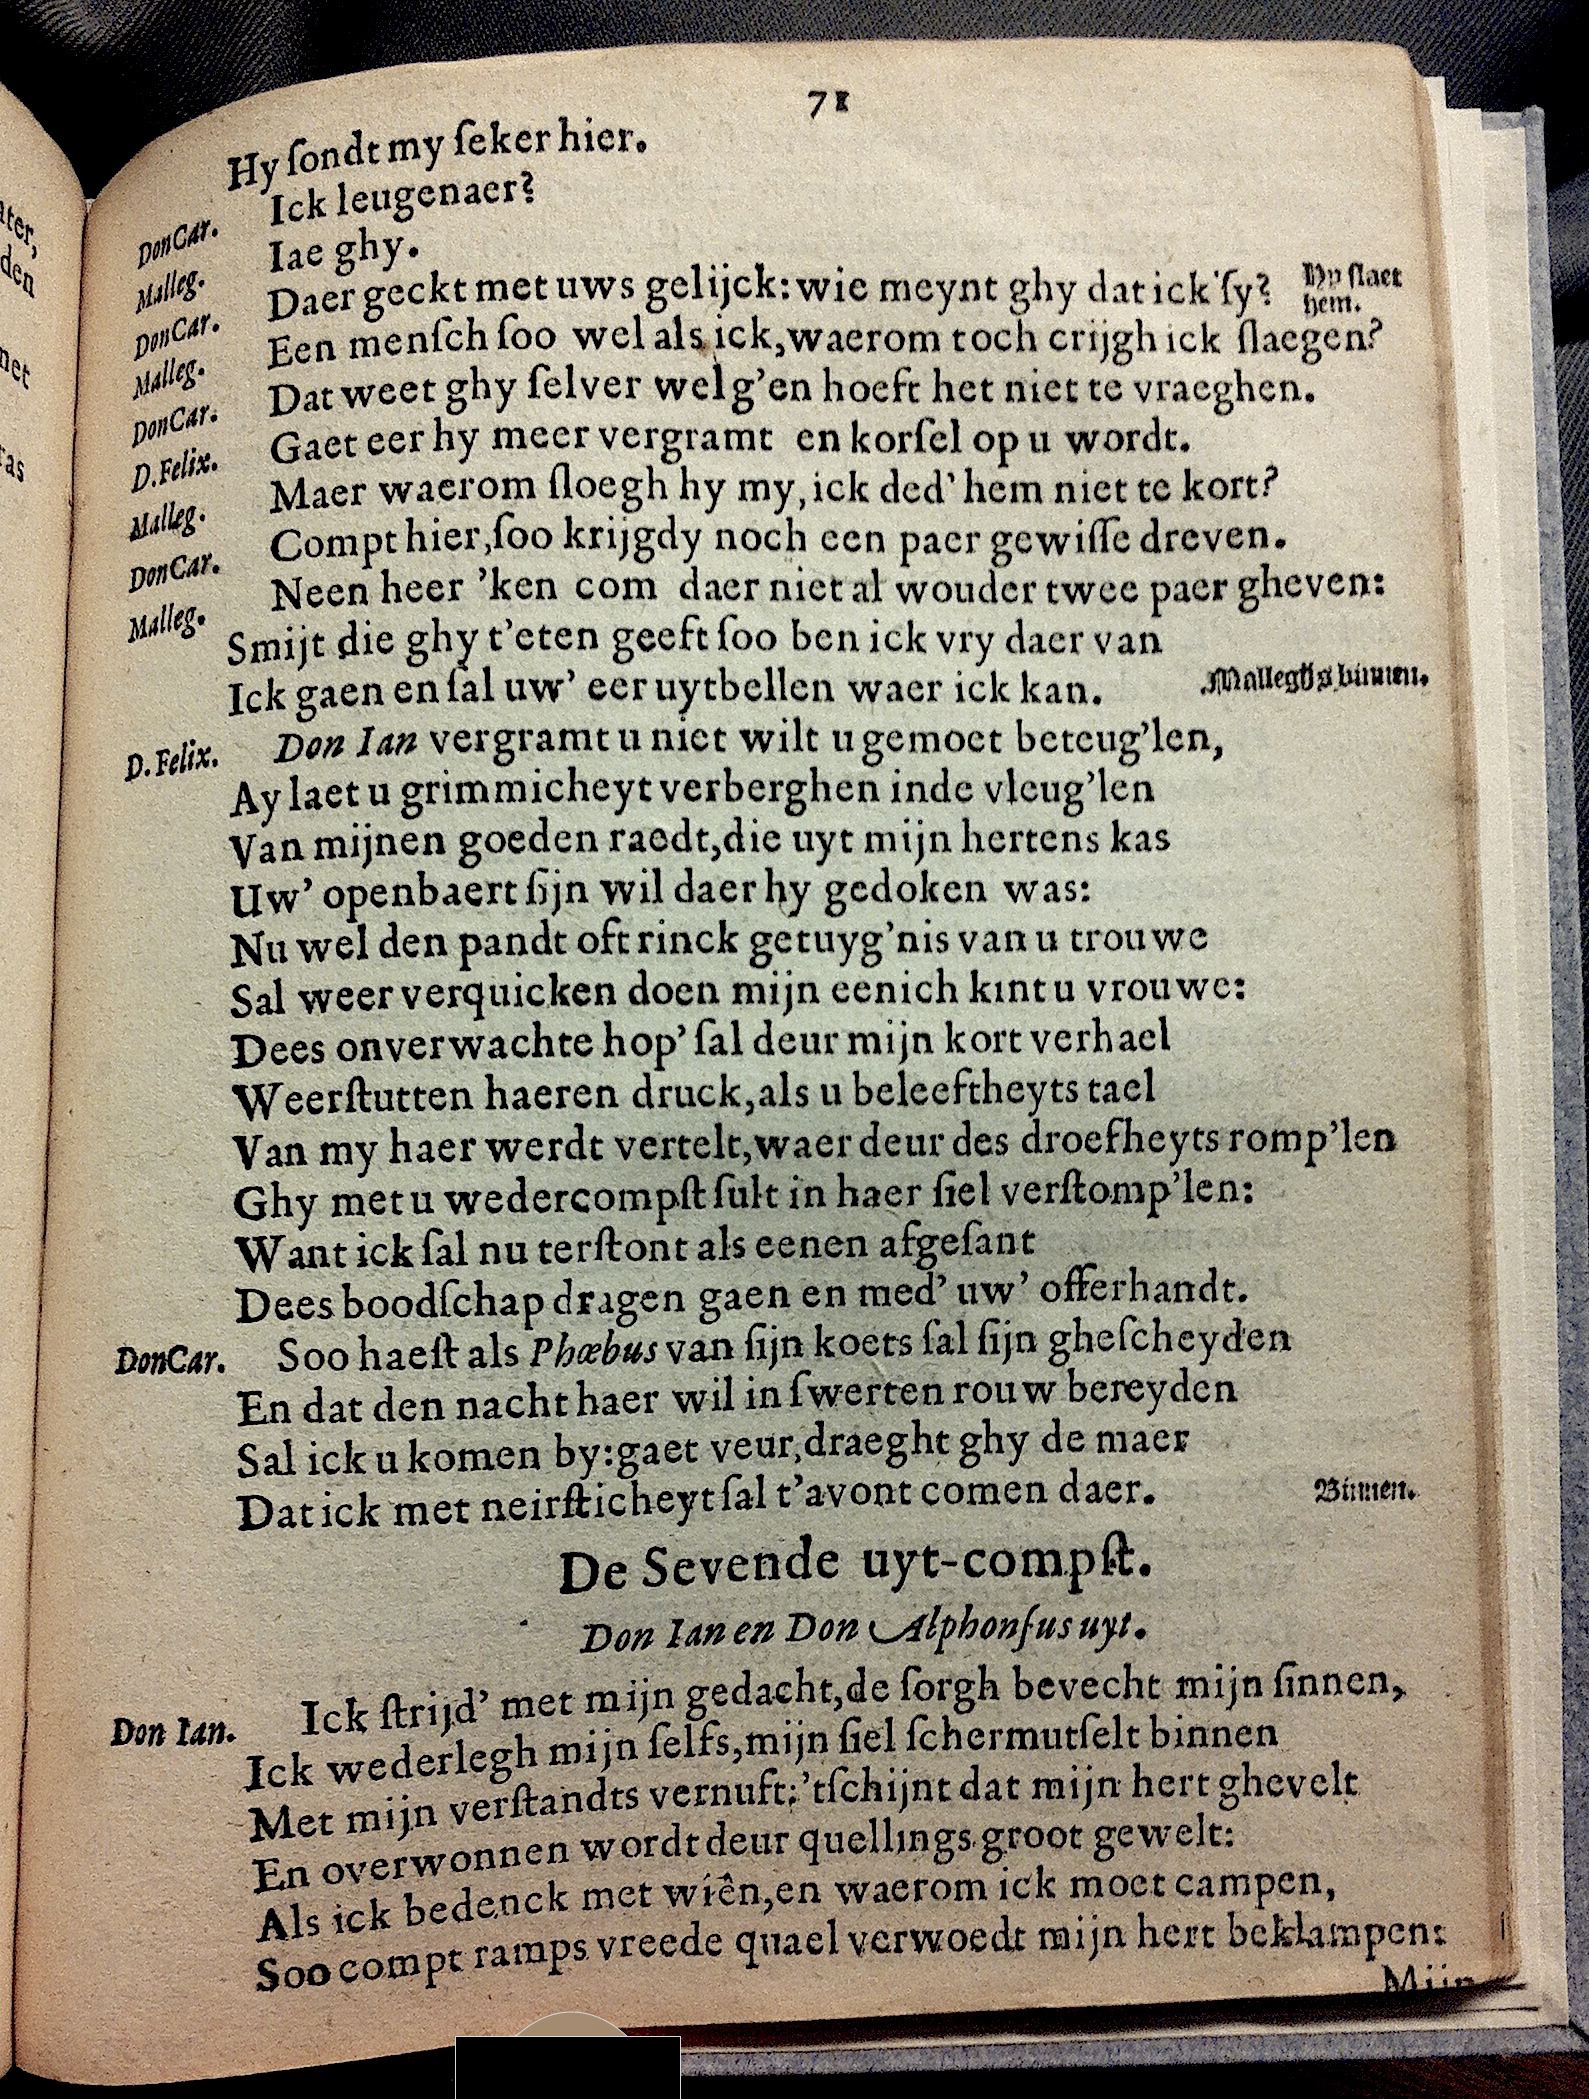 71
Hy ſondt my ſeker hier.
DonCar. Ick leugenaer?
Malleg. Iae ghy.
DonCar. Daer geckt met uws gelijck: wie meynt ghy dat ick ſy? Hy ſlaet hem.
Malleg. Een menſch ſoo wel als ick, waerom toch crijgh ick ſlaegen?
DonCar. Dat weet ghy ſelver wel g'en hoeft het niet te vraeghen.
D. Felix. Gaet eer hy meer vergramt en korſel op u wordt.
Malleg. Maer waerom ſloegh hy my, ick ded' hem niet te kort?
DonCar. Compt hier, ſoo krijgdy noch een paer gewiſſe dreven.
Malleg. Neen heer 'ken com daer niet al wouder twee paer gheven:
Smijt die ghy t'eten geeft ſoo ben ick vry daer van
Ick gaen en ſal uw' eer uytbellen waer ick kan. Mallegijs binnen.
D. Felix. Don Ian vergramt u niet wilt u gemoet beteug'len,
Ay laet u grimmicheyt verberghen inde vleug'len
Van mijnen goeden raedt, die uyt mijn hertens kas
Uw' openbaert ſijn wil daer hy gedoken was:
Nu wel den pandt oft rinck getuyg'nis van u trouwe
Sal weer verquicken doen mijn eenich kint u vrouwe:
Dees onverwachte hop' ſal deur mijn kort verhael
Weerſtutten haeren druck, als u beleeftheyts tael
Van my haer werdt vertelt, waer deur des droefheyts romp'len
Ghy met u wedercompſt ſult in haer ſiel verſtomp'len:
Want ick ſal nu terſtont als eenen afgeſant
Dees boodſchap dragen gaen en med' uw' offerhandt.
DonCar. Soo haeſt als Phœbus van ſijn koets ſal ſijn gheſcheyden
En dat den nacht haer wil in ſwerten rouw bereyden
Sal ick u komen by: gaet veur, draeght ghy de maer
Dat ick met neirſticheyt ſal t'avont comen daer. Binnen.
De Sevende uyt-compſt.
Don Ian en Don Alphonſus uyt.
Don Ian. Ick ſtrijd' met mijn gedacht, de ſorgh bevecht mijn ſinnen,
Ick wederlegh mijn ſelfs, mijn ſiel ſchermutſelt binnen
Met mijn verſtandts vernuft: 'tſchijnt dat mijn hert ghevelt
En overwonnen wordt deur quellings groot gewelt:
Als ick bedenck met wiên, en waerom ick moet campen,
Soo compt ramps vreede quael verwoedt mijn hert beklampen:
Mijn